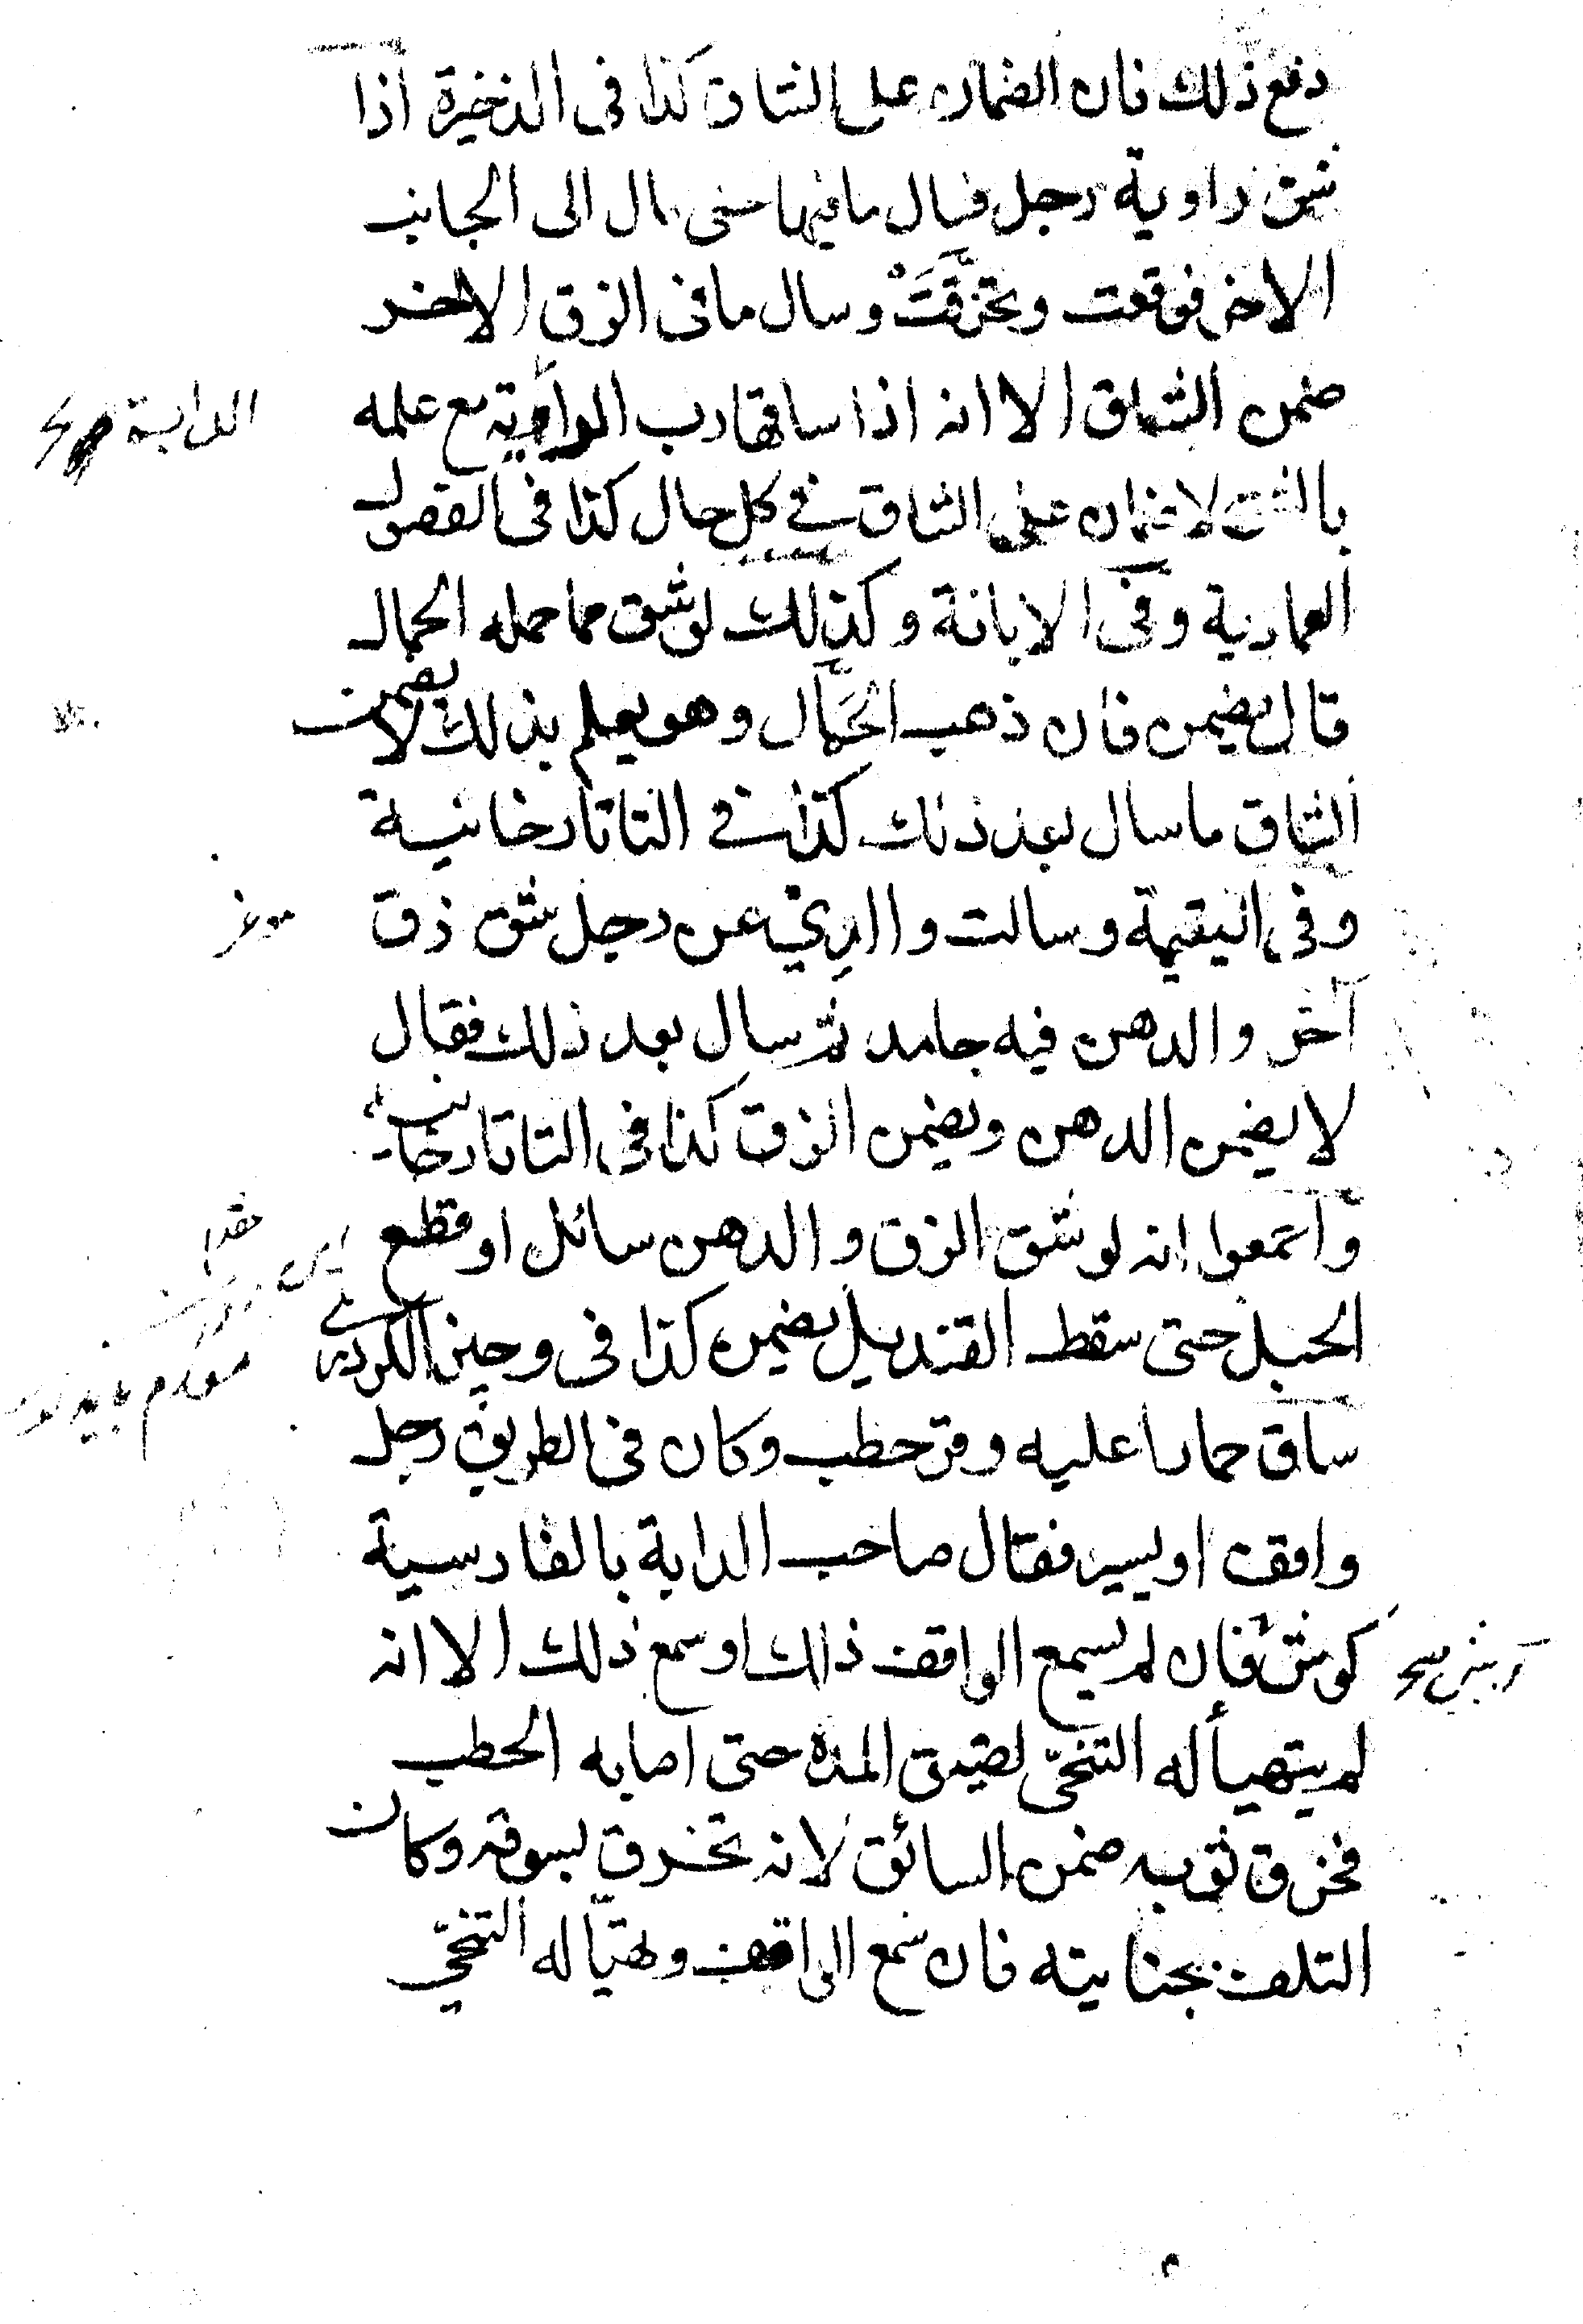 دفع ذلك فان الضمان على الشاق كذا فى الذخيرة اذا
شق راوية رجل فسال ما فيها حتى مال الى الجانب
الاخر فوقعت وتخرّقَتْ وسال ما فى الزق الاخر
ضمن الشاق الا انه اذا ساقها رب الراوية مع علمه
الدابة صح
بالشق لا ضمان على الشاق فى كل حال كذا فى الفصول
العمادية وفى الابانة وكذلك لو شق مما حمله الحمال
قال يضمن فان ذهب الحَمَّال وهو يعلم بذلك لا يضمن
الشاق ما سال بعد ذلك كذا فى التاتارخانية
وفى اليتيمة وسالت والدي عن رجل شق زق
آخر والدهن فيه جامد ثم سال بعد ذلك فقال
لا يضمن الدهن ويضمن الزق كذا فى التاتارخانية
واجمعوا انه لو شق الزق والدهن سائل او قطع
الحبل حتى سقط القنديل يضمن كذا فى وجيز الكردرى
ساق حمارا عليه وقر حطب وكان فى الطريق رجل
واقف او يسير فقال صاحب الدابة بالفارسية
كوش فان لم يسمع الواقف ذلك او سمع ذلك الا انه
لم يتهيأ له التنحّى لضيق المدة حتى اصابه الحطب
فخرق ثوبه ضمن السائق لانه تخرق بسوقه وكان
التلف بجنايته فان سمع الواقف وتهيّأ له التنحّي